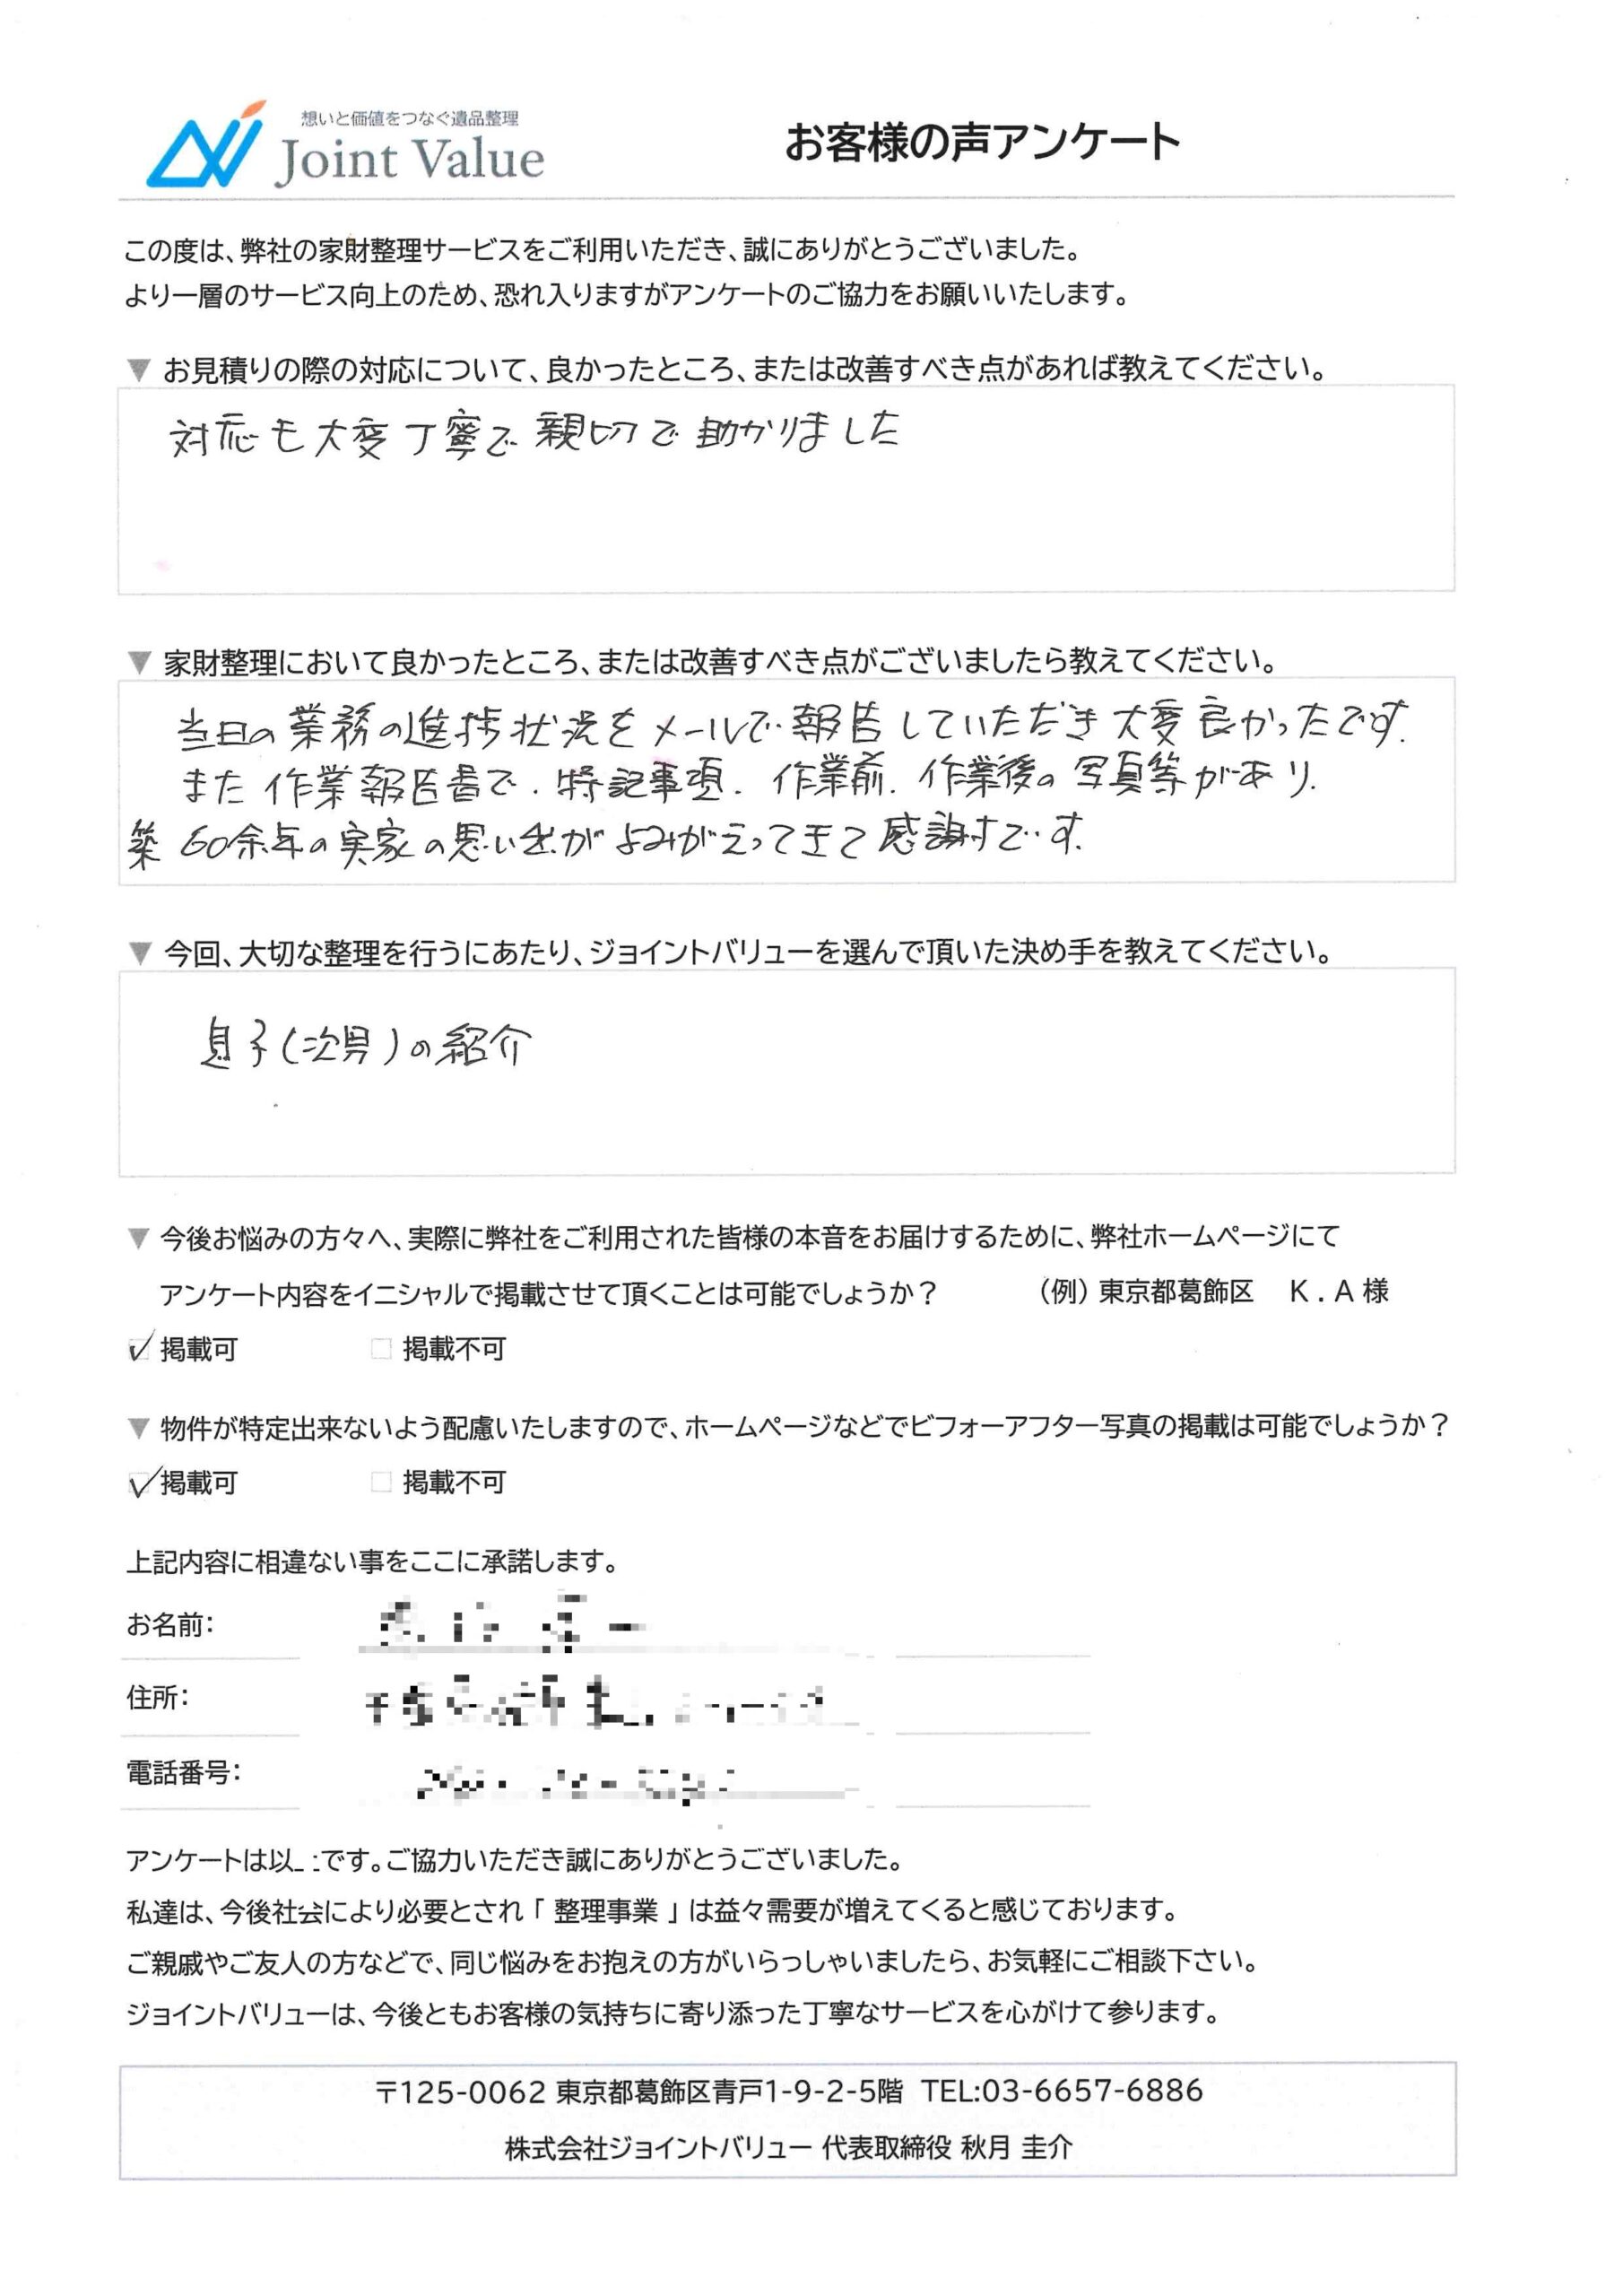 想いと価値をつなぐ遺品整理
Joint Value
お客様の声アンケート
この度は、弊社の家財整理サービスをご利用いただき、誠にありがとうございました。
より一層のサービス向上のため、恐れ入りますがアンケートのご協力をお願いいたします。
▼ お見積りの際の対応について、良かったところ、または改善すべき点があれば教えてください。
対応も大変丁寧で親切で助かりました
▼ 家財整理において良かったところ、または改善すべき点がございましたら教えてください。
当日の業務の進捗状況をメールで報告していただき大変良かったです.
また作業報告書で.特記事項.作業前.作業後の写真等があり.
築60余年の実家の思い出がよみがえってきて感謝です.
▼ 今回、大切な整理を行うにあたり、ジョイントバリューを選んで頂いた決め手を教えてください。
息子(次男)の紹介
▼ 今後お悩みの方々へ、実際に弊社をご利用された皆様の本音をお届けするために、弊社ホームページにて
アンケート内容をイニシャルで掲載させて頂くことは可能でしょうか? (例) 東京都葛飾区 K.A 様
☑ 掲載可 □ 掲載不可
▼ 物件が特定出来ないよう配慮いたしますので、ホームページなどでビフォーアフター写真の掲載は可能でしょうか?
☑ 掲載可 □ 掲載不可
上記内容に相違ない事をここに承諾します。
お名前:
住所:
電話番号:
アンケートは以 です。ご協力いただき誠にありがとうございました。
私達は、今後社会により必要とされ「 整理事業 」は益々需要が増えてくると感じております。
ご親戚やご友人の方などで、同じ悩みをお抱えの方がいらっしゃいましたら、お気軽にご相談下さい。
ジョイントバリューは、今後ともお客様の気持ちに寄り添った丁寧なサービスを心がけて参ります。
〒125-0062 東京都葛飾区青戸1-9-2-5階 TEL:03-6657-6886
株式会社ジョイントバリュー 代表取締役 秋月 圭介